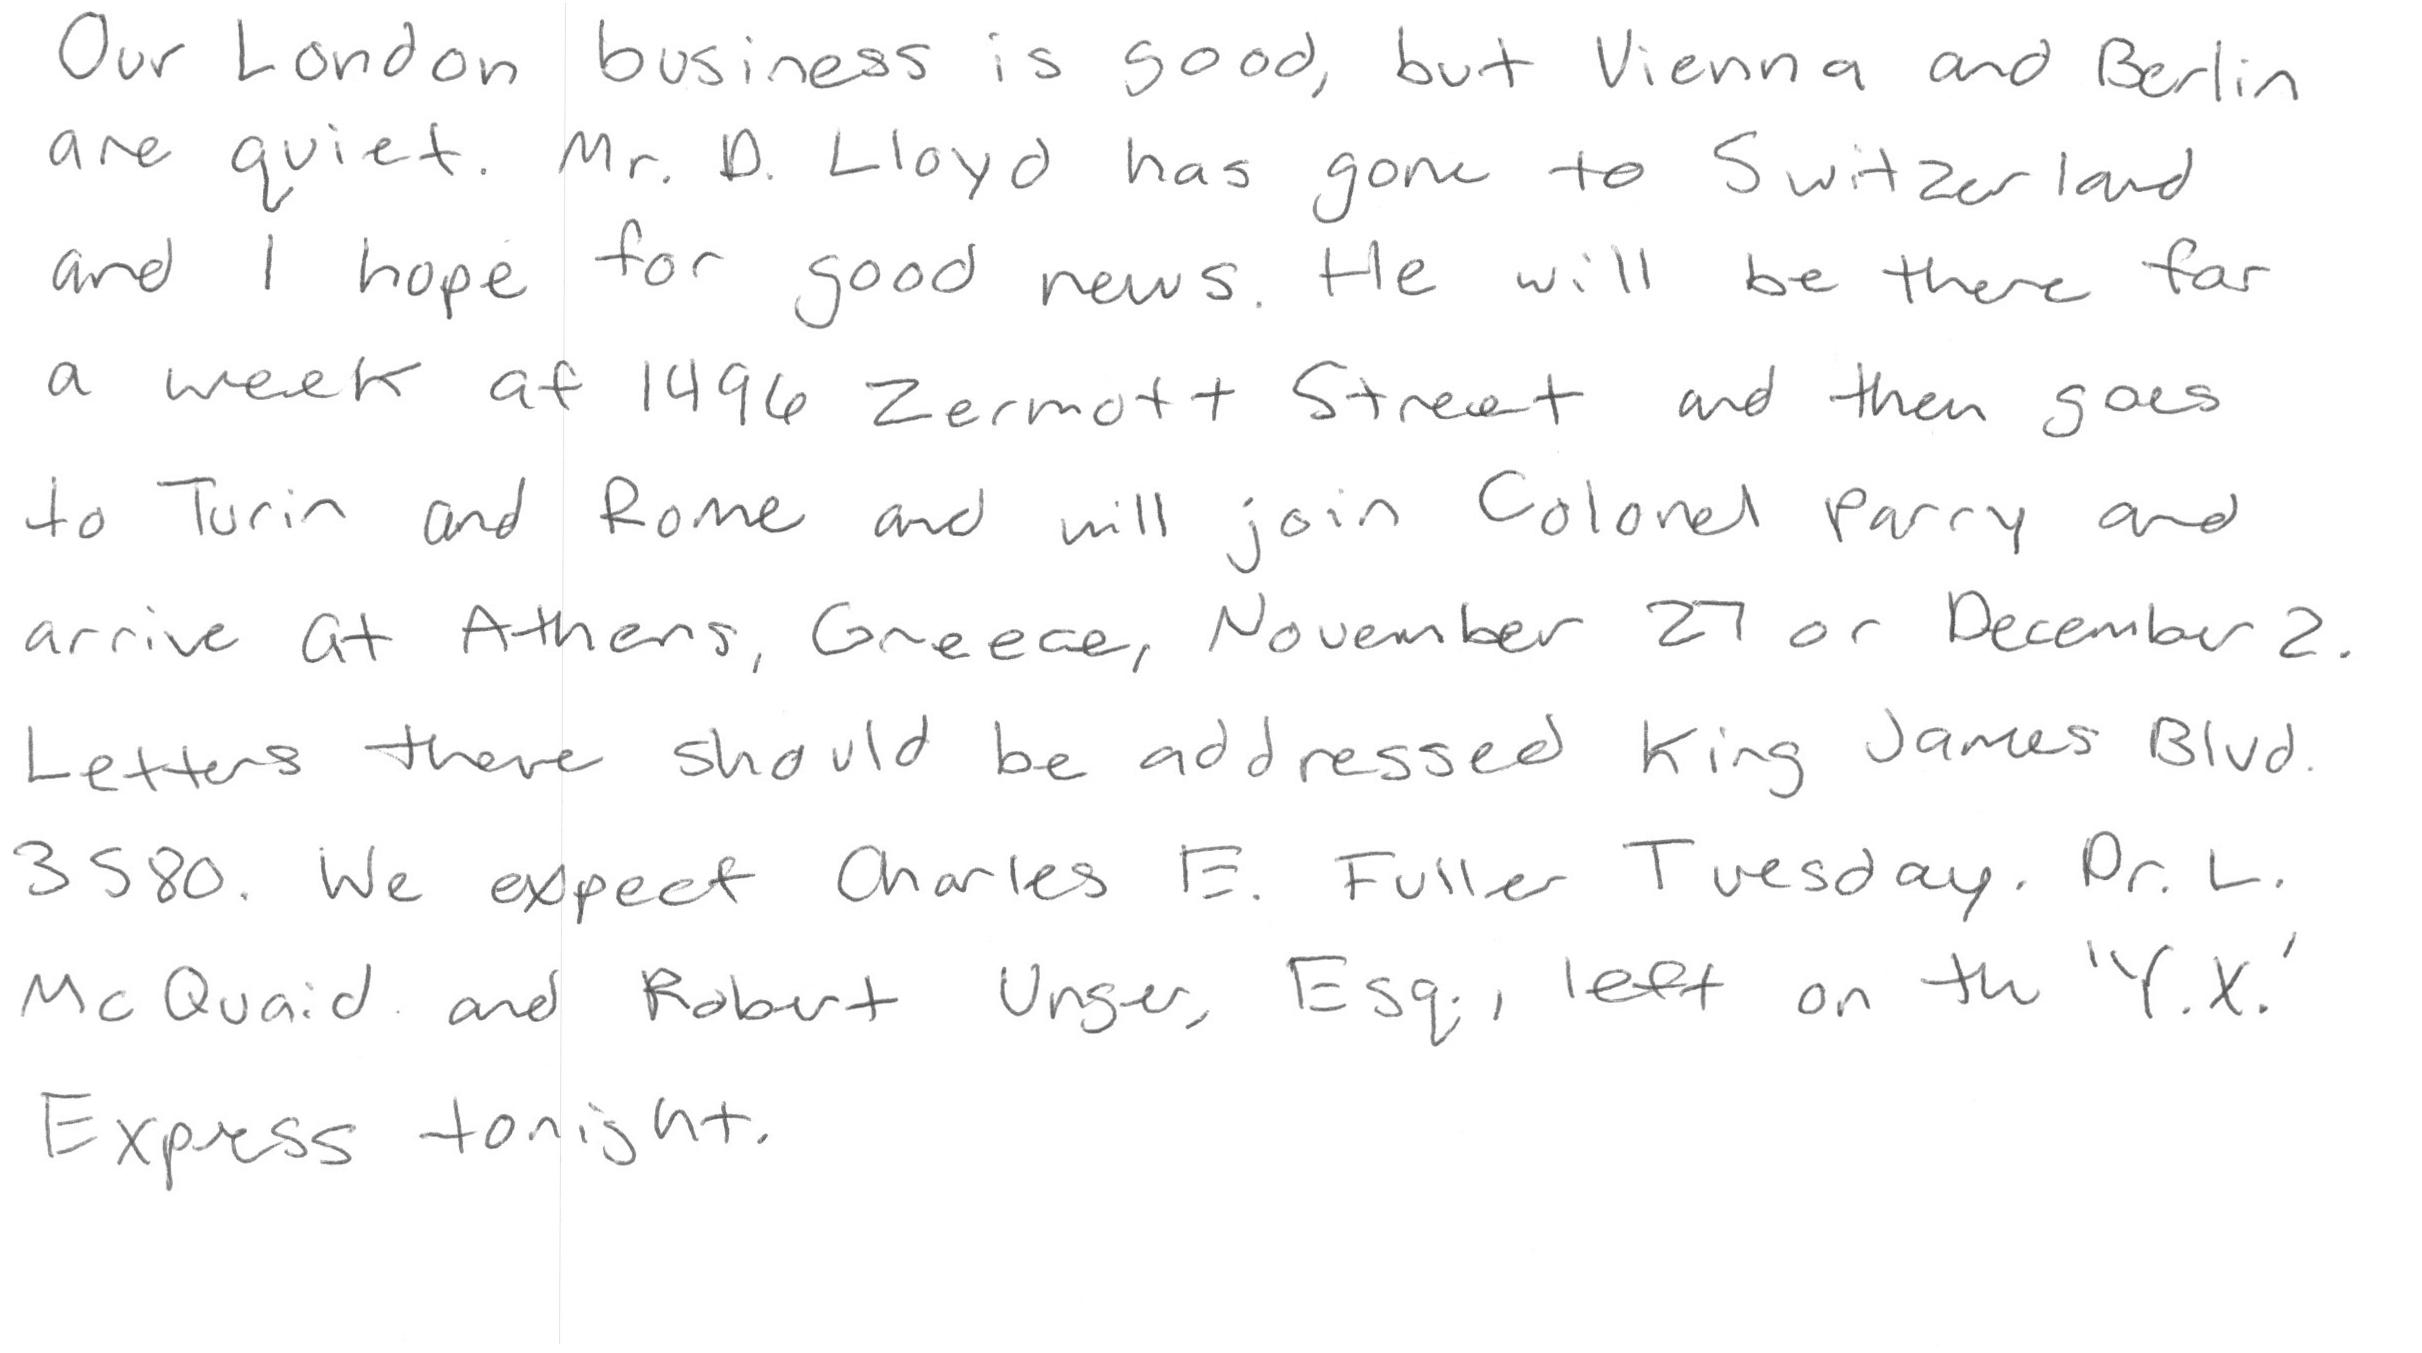 Our London business is good, but Vienna and Berlin
are quiet. Mr. D. Lloyd has gone to Switzerland
and I hope for good news. He will be there for
a week at 1496 Zermott Street and then goes
to Turin and Rome and will join Colonel Parry and
arrive at Athens, Greece, November 27 or December 2.
Letters there should be addressed King James Blvd.
3580. We expect Charles E. Fuller Tuesday. Dr. L.
McQuaid and Robert Unger, Esq., left on the "Y.X."
Express tonight.